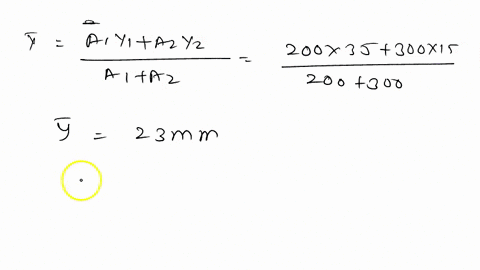 ȳ = A1Y1+A2Y2 / A1+A2 = 200×35+300×15 / 200+300
ȳ = 23mm